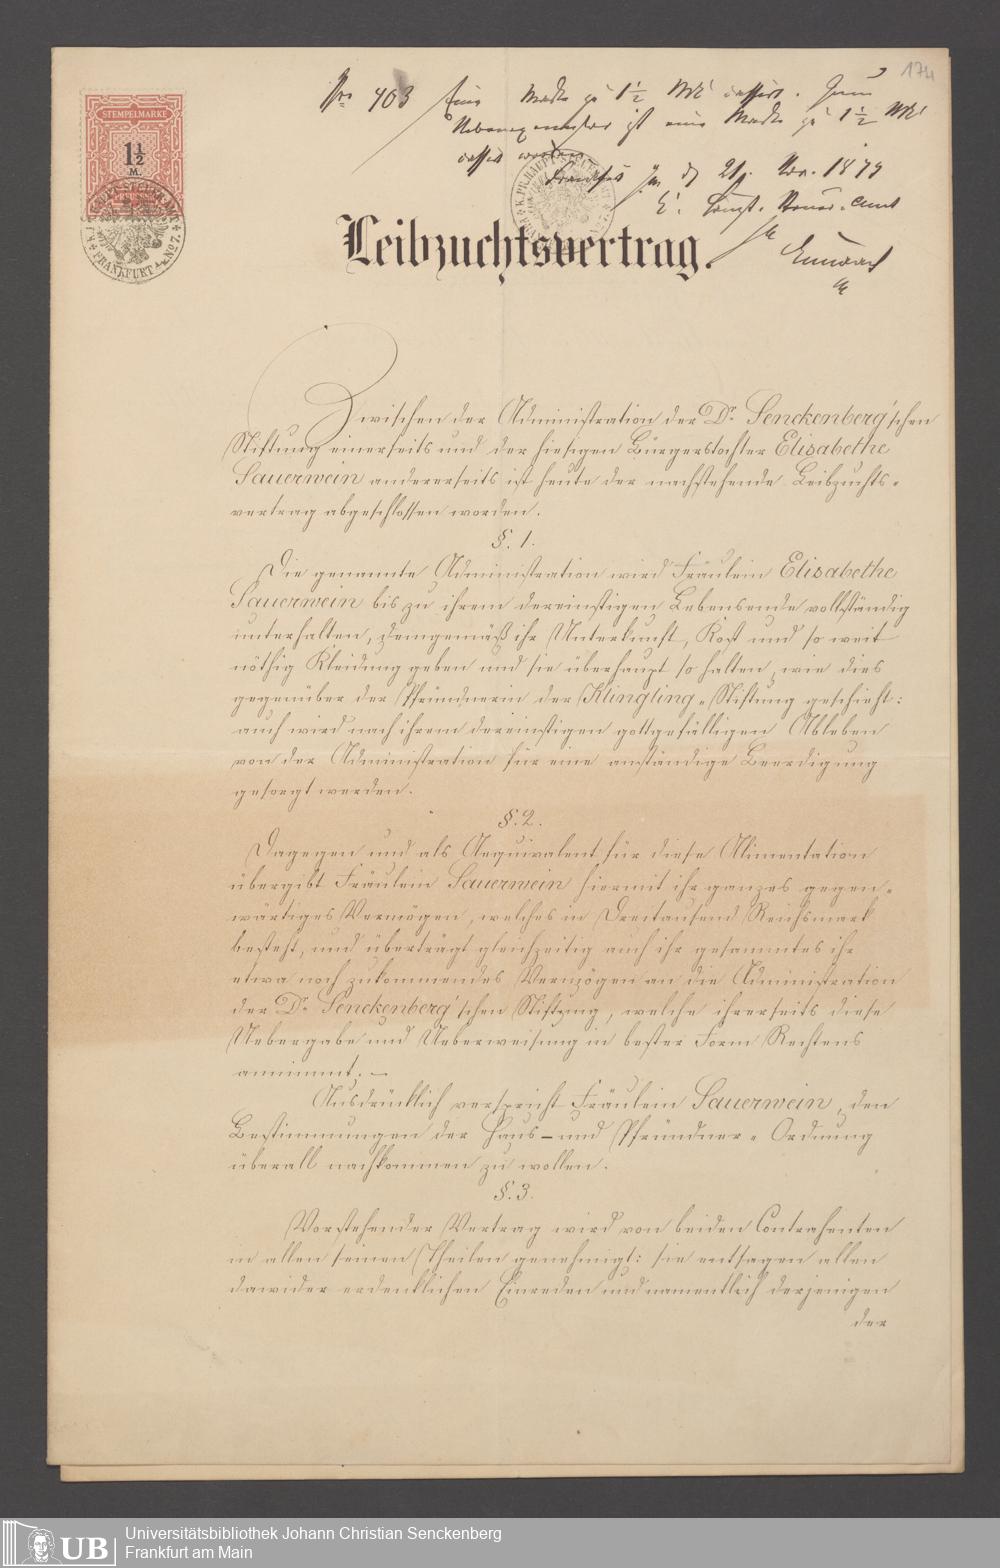 174
No 403 Eine Marke zu 1 1/2 Mk cassirt. Zum
Nebenexemplar ist eine Marke zu 1 1/2 Mk
cassirt worden
Frankfurt a/M, d 21. Nov. 1879
STEMPELMARKE
1 1/2
M.
FRANKFURT a/M No 7.
Leibzuchtsvertrag.
Zwischen der Administration der Dr. Senckenberg'schen
Stiftung einerseits und der hiesigen Bürgerstochter Elisabethe
Sauerwein andererseits ist heute der nachstehende Leibzuchts-
vertrag abgeschlossen worden.
§. 1.
Die genannte Administration wird Fräulein Elisabethe
Sauerwein bis zu ihrem dereinstigen Lebensende vollständig
unterhalten, demgemäß ihr Unterkunft, Kost und so weit
nöthig Kleidung geben und sie überhaupt so halten, wie dies
gegenüber der Pfründnerin der Klingling-Stiftung geschieht:
auch wird nach ihrem dereinstigen gottgefälligen Ableben
von der Administration für eine anständige Beerdigung
gesorgt werden.
§. 2.
Dagegen und als Aequivalent für diese Alimentation
übergibt Fräulein Sauerwein hiermit ihr ganzes gegen-
wärtiges Vermögen, welches in Dreitausend Reichsmark
besteht, und überträgt gleichzeitig auch ihr gesammtes ihr
etwa noch zukommendes Vermögen an die Administration
der Dr. Senckenberg'schen Stiftung, welche ihrerseits diese
Uebergabe und Ueberweisung in bester Form Rechtens
annimmt. —
Ausdrücklich verspricht Fräulein Sauerwein, den
Bestimmungen der Haus- und Pfründner-Ordnung
überall nachkommen zu wollen.
§. 3.
Vorstehender Vertrag wird von beiden Contrahenten
in allen seinen Theilen genehmigt: sie entsagen allen
dawider erdenklichen Einreden und namentlich derjenigen
der
UB
Universitätsbibliothek Johann Christian Senckenberg
Frankfurt am Main